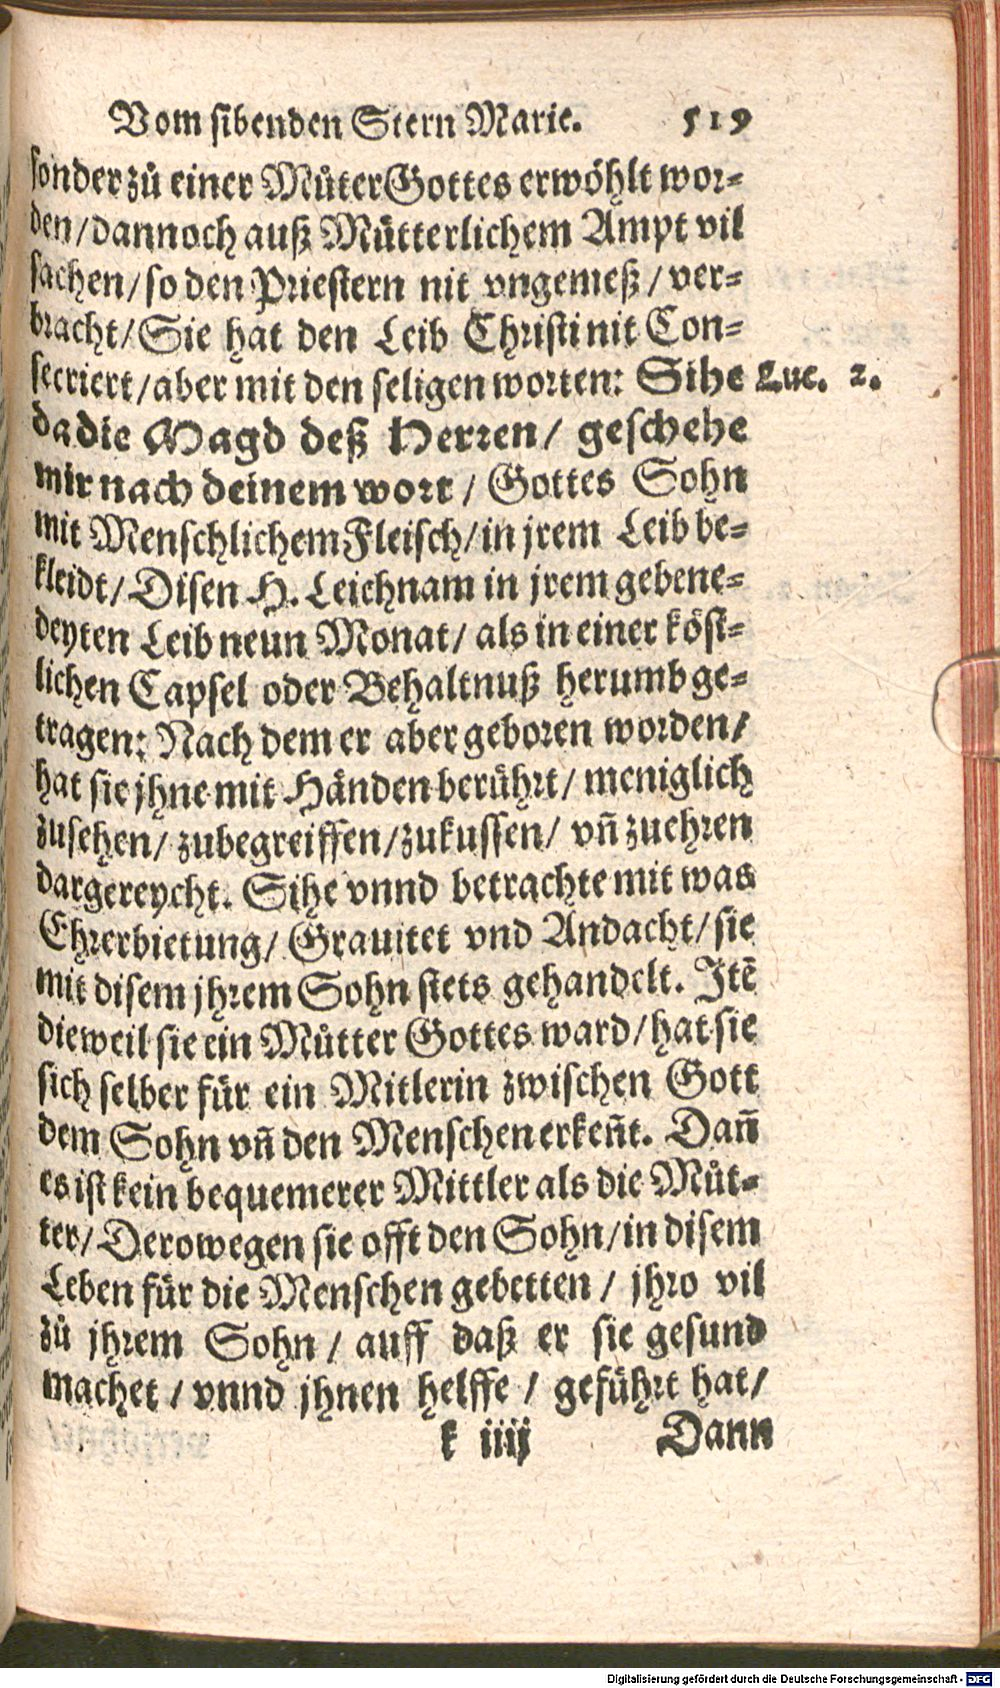 Vom sibenden Stern Marie. 519
sonder zů einer Můter Gottes erwöhlt wor-
den/dannoch auß Můtterlichem Ampt vil
sachen/so den Priestern nit vngemeß/ver-
bracht/Sie hat den Leib Christi nit Con-
secriert/aber mit den seligen worten: Sihe Luc. 2.
da die Magd deß Herren/ geschehe
mir nach deinem wort/ Gottes Sohn
mit Menschlichem Fleisch/in jrem Leib be-
kleidt/Disen H. Leichnam in jrem gebene-
deyten Leib neun Monat/als in einer köst-
lichen Capsel oder Behaltnuß herumb ge-
tragen: Nach dem er aber geboren worden/
hat sie jhne mit Händen berührt/ meniglich
zusehen/zubegreiffen/zukussen/ vñ zuehren
dargereycht. Sihe vnnd betrachte mit was
Ehrerbietung/ Grauitet vnd Andacht/sie
mit disem jhrem Sohn stets gehandelt. Itē
dieweil sie ein Můtter Gottes ward/hat sie
sich selber für ein Mitlerin zwischen Gott
dem Sohn vñ den Menschen erkeñt. Dañ
es ist kein bequemerer Mittler als die Můt-
ter/Derowegen sie offt den Sohn/in disem
Leben für die Menschen gebetten/ jhro vil
zů jhrem Sohn/ auff daß er sie gesund
machet/vnnd jhnen helffe/ geführt hat/
k iiij Dann
Digitalisierung gefördert durch die Deutsche Forschungsgemeinschaft - DFG